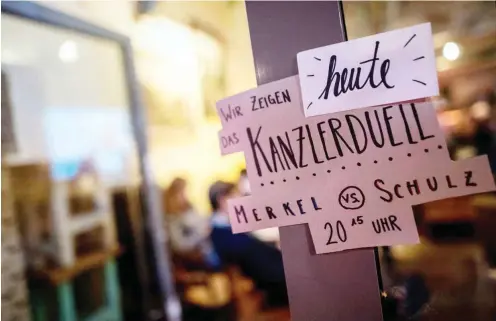 heute
WIR ZEIGEN
DAS
KANZLERDUELL
MERKEL VS. SCHULZ
20 15 UHR